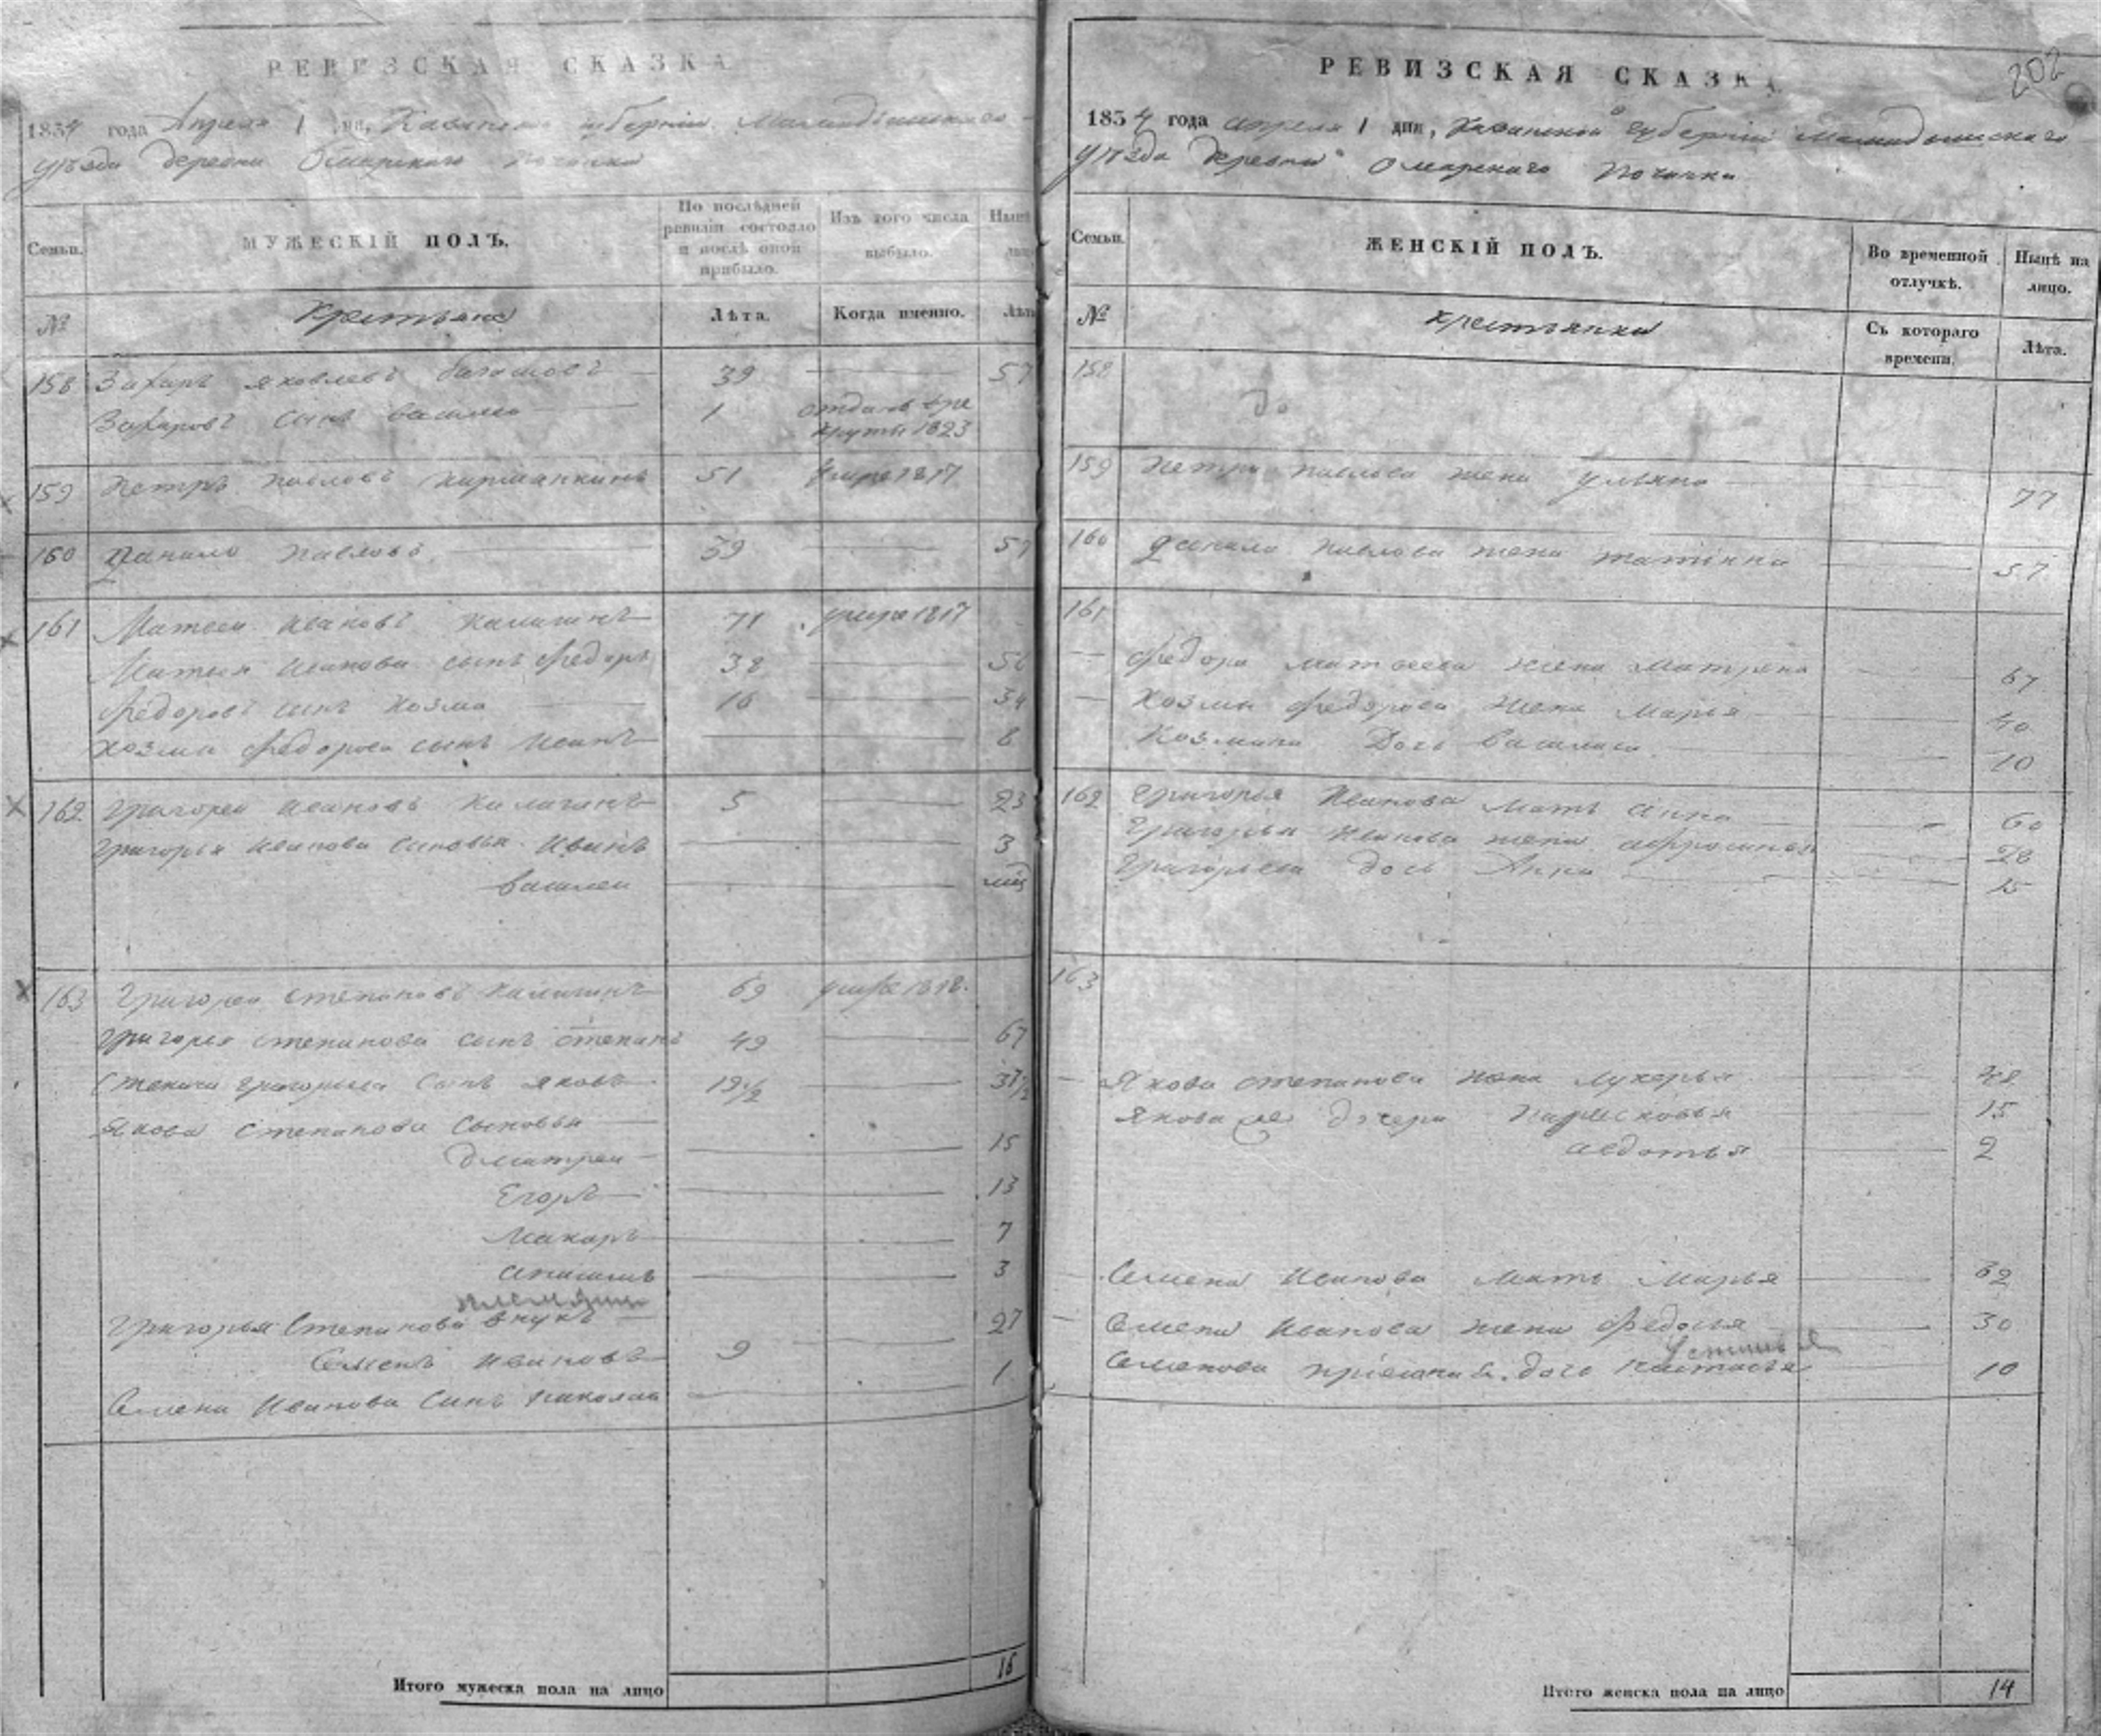 РЕВИЗСКАЯ СКАЗКА
1834 года Апреля 1 дня, Казанской губернiи Мамадышскаго
уѣзда деревни Омарскаго Починка
Семьи.
МУЖЕСКIЙ ПОЛЪ.
По послѣдней ревизiи состояло и послѣ оной прибыло.
Изъ того числа выбыло.
Нынѣ
№
Крестьяне
Лѣта.
Когда именно.
Лѣта
158 Захаръ Яковлевъ 39 57
Захаровъ сынъ Василей 1 отданъ в ре
круты 1823
159 Петръ Павловъ 51 умре 1817
160 Данило Павловъ 39 57
161 Матвеи Ивановъ Калигинъ 71 умре 1817
Матвея Иванова сынъ Федоръ 38 56
Федоровъ сынъ Козма 16 34
Козмы Федорова сынъ Иванъ 8
162 Григореи Ивановъ Калигинъ 5 23
Григорья Иванова сыновья Иванъ 3
Василеи
163 Григореи Степановъ Калигинъ 69 умре 1818.
Григорья Степанова сынъ Степанъ 49 67
Степана Григорьева сынъ Яковъ 19 1/2 37 1/2
Якова Степанова сыновья
Дмитреи 15
Егоръ 13
Макаръ 7
3
Григорья Степанова внукъ 27
Семенъ Ивановъ 9
Семена Иванова сынъ Николаи 1
Итого мужеска пола на лицо 16
202
РЕВИЗСКАЯ СКАЗКА
1834 года апреля 1 дня, Казанской губернiи Мамадышскаго
уѣзда деревни Омарскаго Починка
Семьи.
ЖЕНСКIЙ ПОЛЪ.
Во временной отлучкѣ.
Нынѣ на лицо.
№
Крестьянки
Съ котораго времени.
Лѣта.
158
159 Петра Павлова жена Ульяна 77
160 Данила Павлова жена Татiяна 57
161
Федора Матвеева жена Матрена 67
Козмы Федорова жена Марья 40
Козмина дочь Василиса 10
162 Григорья Иванова мать Анна 60
Григорья Иванова жена Афросинья 28
Григорьева дочь Анна 15
163
Якова Степанова жена Лукерья 48
Якова дочери Парасковья 15
Авдотья 2
Семена Иванова мать Марья 62
Семена Иванова жена Федосья 30
Устинья
Семенова прiемная дочь Настасья 10
Итого женска пола на лицо 14